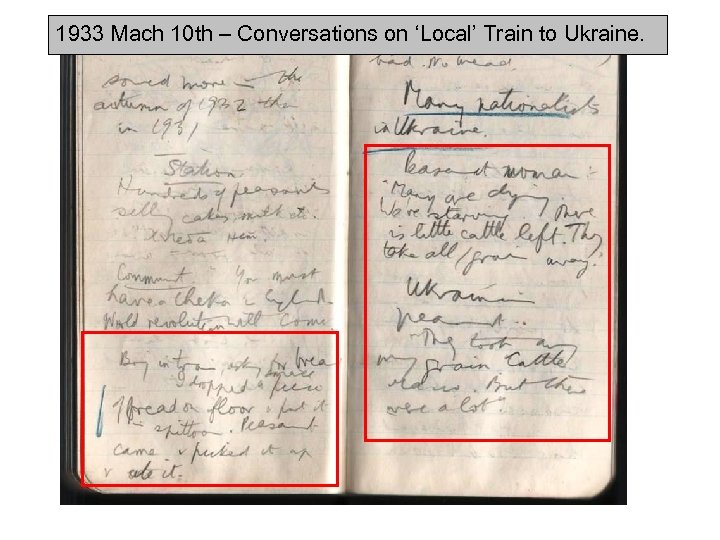 1933 Mach 10 th – Conversations on ‘Local’ Train to Ukraine.
sowed more in the
autumn of 1932 than
in 1931
Station
Hundreds of peasants
selling cakes milk etc.
Communist "You must
have a Cheka in England
World revolution will come.
Boy in train asking for bread
I dropped a piece
of bread on floor & put it
in spittoon. Peasant
came & picked it up
& ate it.
bad. No bread.
Many nationalists
in Ukraine.
Peasant woman:-
"Many are dying
We're starving. There
is little cattle left. They
take all grain away."
Ukrainian
peasant:
"They took away
my grain Cattle
But there
were a lot".